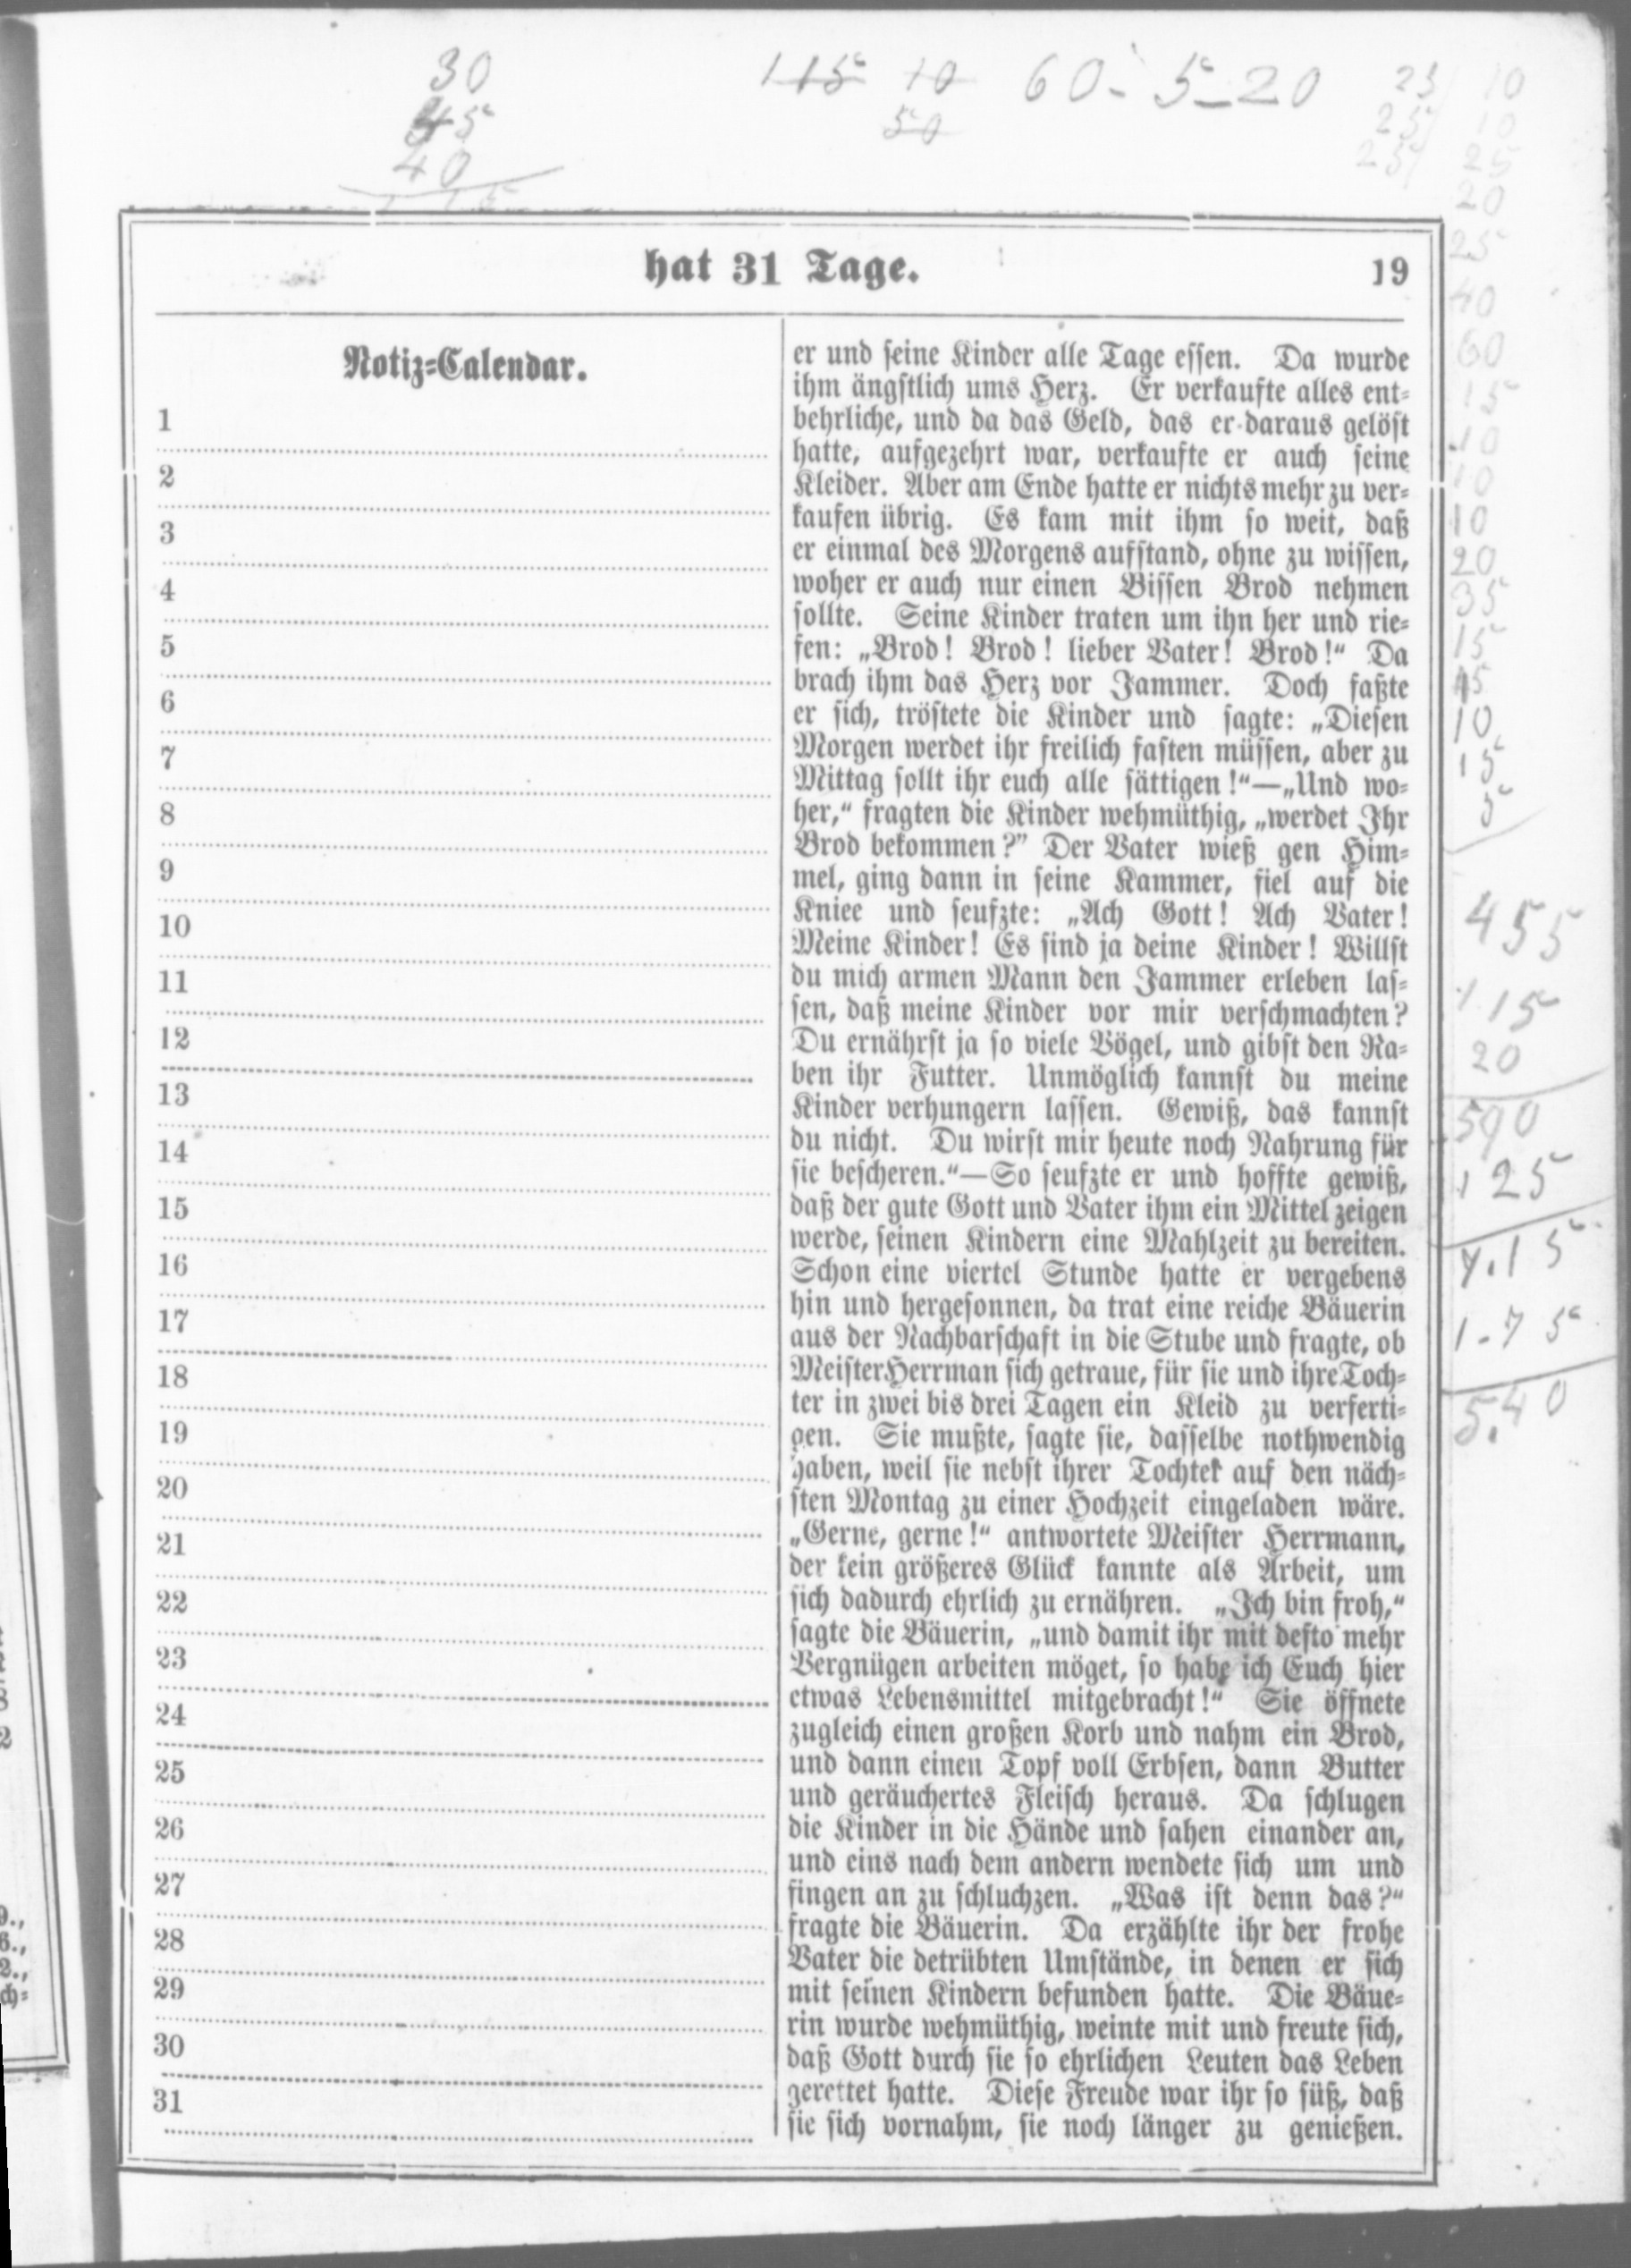 30
45
40
115 10 60 - 5 - 20
50
25 10
25 10
25 25
20
25
40
60
15
10
10
10
20
35
15
15
10
15
5
455
115
20
590
125
7.15
1-75
5.40
hat 31 Tage.
19
Notiz-Calendar.
1
2
3
4
5
6
7
8
9
10
11
12
13
14
15
16
17
18
19
20
21
22
23
24
25
26
27
28
29
30
31
er und seine Kinder alle Tage essen. Da wurde
ihm ängstlich ums Herz. Er verkaufte alles ent-
behrliche, und da das Geld, das er daraus gelöst
hatte, aufgezehrt war, verkaufte er auch seine
Kleider. Aber am Ende hatte er nichts mehr zu ver-
kaufen übrig. Es kam mit ihm so weit, daß
er einmal des Morgens aufstand, ohne zu wissen,
woher er auch nur einen Bissen Brod nehmen
sollte. Seine Kinder traten um ihn her und rie-
fen: „Brod! Brod! lieber Vater! Brod!“ Da
brach ihm das Herz vor Jammer. Doch faßte
er sich, tröstete die Kinder und sagte: „Diesen
Morgen werdet ihr freilich fasten müssen, aber zu
Mittag sollt ihr euch alle sättigen!“—„Und wo-
her,“ fragten die Kinder wehmüthig, „werdet Ihr
Brod bekommen?” Der Vater wieß gen Him-
mel, ging dann in seine Kammer, fiel auf die
Kniee und seufzte: „Ach Gott! Ach Vater!
Meine Kinder! Es sind ja deine Kinder! Willst
du mich armen Mann den Jammer erleben las-
sen, daß meine Kinder vor mir verschmachten?
Du ernährst ja so viele Vögel, und gibst den Ra-
ben ihr Futter. Unmöglich kannst du meine
Kinder verhungern lassen. Gewiß, das kannst
du nicht. Du wirst mir heute noch Nahrung für
sie bescheren.“—So seufzte er und hoffte gewiß,
daß der gute Gott und Vater ihm ein Mittel zeigen
werde, seinen Kindern eine Mahlzeit zu bereiten.
Schon eine viertel Stunde hatte er vergebens
hin und hergesonnen, da trat eine reiche Bäuerin
aus der Nachbarschaft in die Stube und fragte, ob
Meister Herrman sich getraue, für sie und ihre Toch-
ter in zwei bis drei Tagen ein Kleid zu verferti-
gen. Sie mußte, sagte sie, dasselbe nothwendig
haben, weil sie nebst ihrer Tochter auf den näch-
sten Montag zu einer Hochzeit eingeladen wäre.
„Gerne, gerne!“ antwortete Meister Herrmann,
der kein größeres Glück kannte als Arbeit, um
sich dadurch ehrlich zu ernähren. „Ich bin froh,“
sagte die Bäuerin, „und damit ihr mit desto mehr
Vergnügen arbeiten möget, so habe ich Euch hier
etwas Lebensmittel mitgebracht!“ Sie öffnete
zugleich einen großen Korb und nahm ein Brod,
und dann einen Topf voll Erbsen, dann Butter
und geräuchertes Fleisch heraus. Da schlugen
die Kinder in die Hände und sahen einander an,
und eins nach dem andern wendete sich um und
fingen an zu schluchzen. „Was ist denn das?“
fragte die Bäuerin. Da erzählte ihr der frohe
Vater die detrübten Umstände, in denen er sich
mit seinen Kindern befunden hatte. Die Bäue-
rin wurde wehmüthig, weinte mit und freute sich,
daß Gott durch sie so ehrlichen Leuten das Leben
gerettet hatte. Diese Freude war ihr so süß, daß
sie sich vornahm, sie noch länger zu genießen.